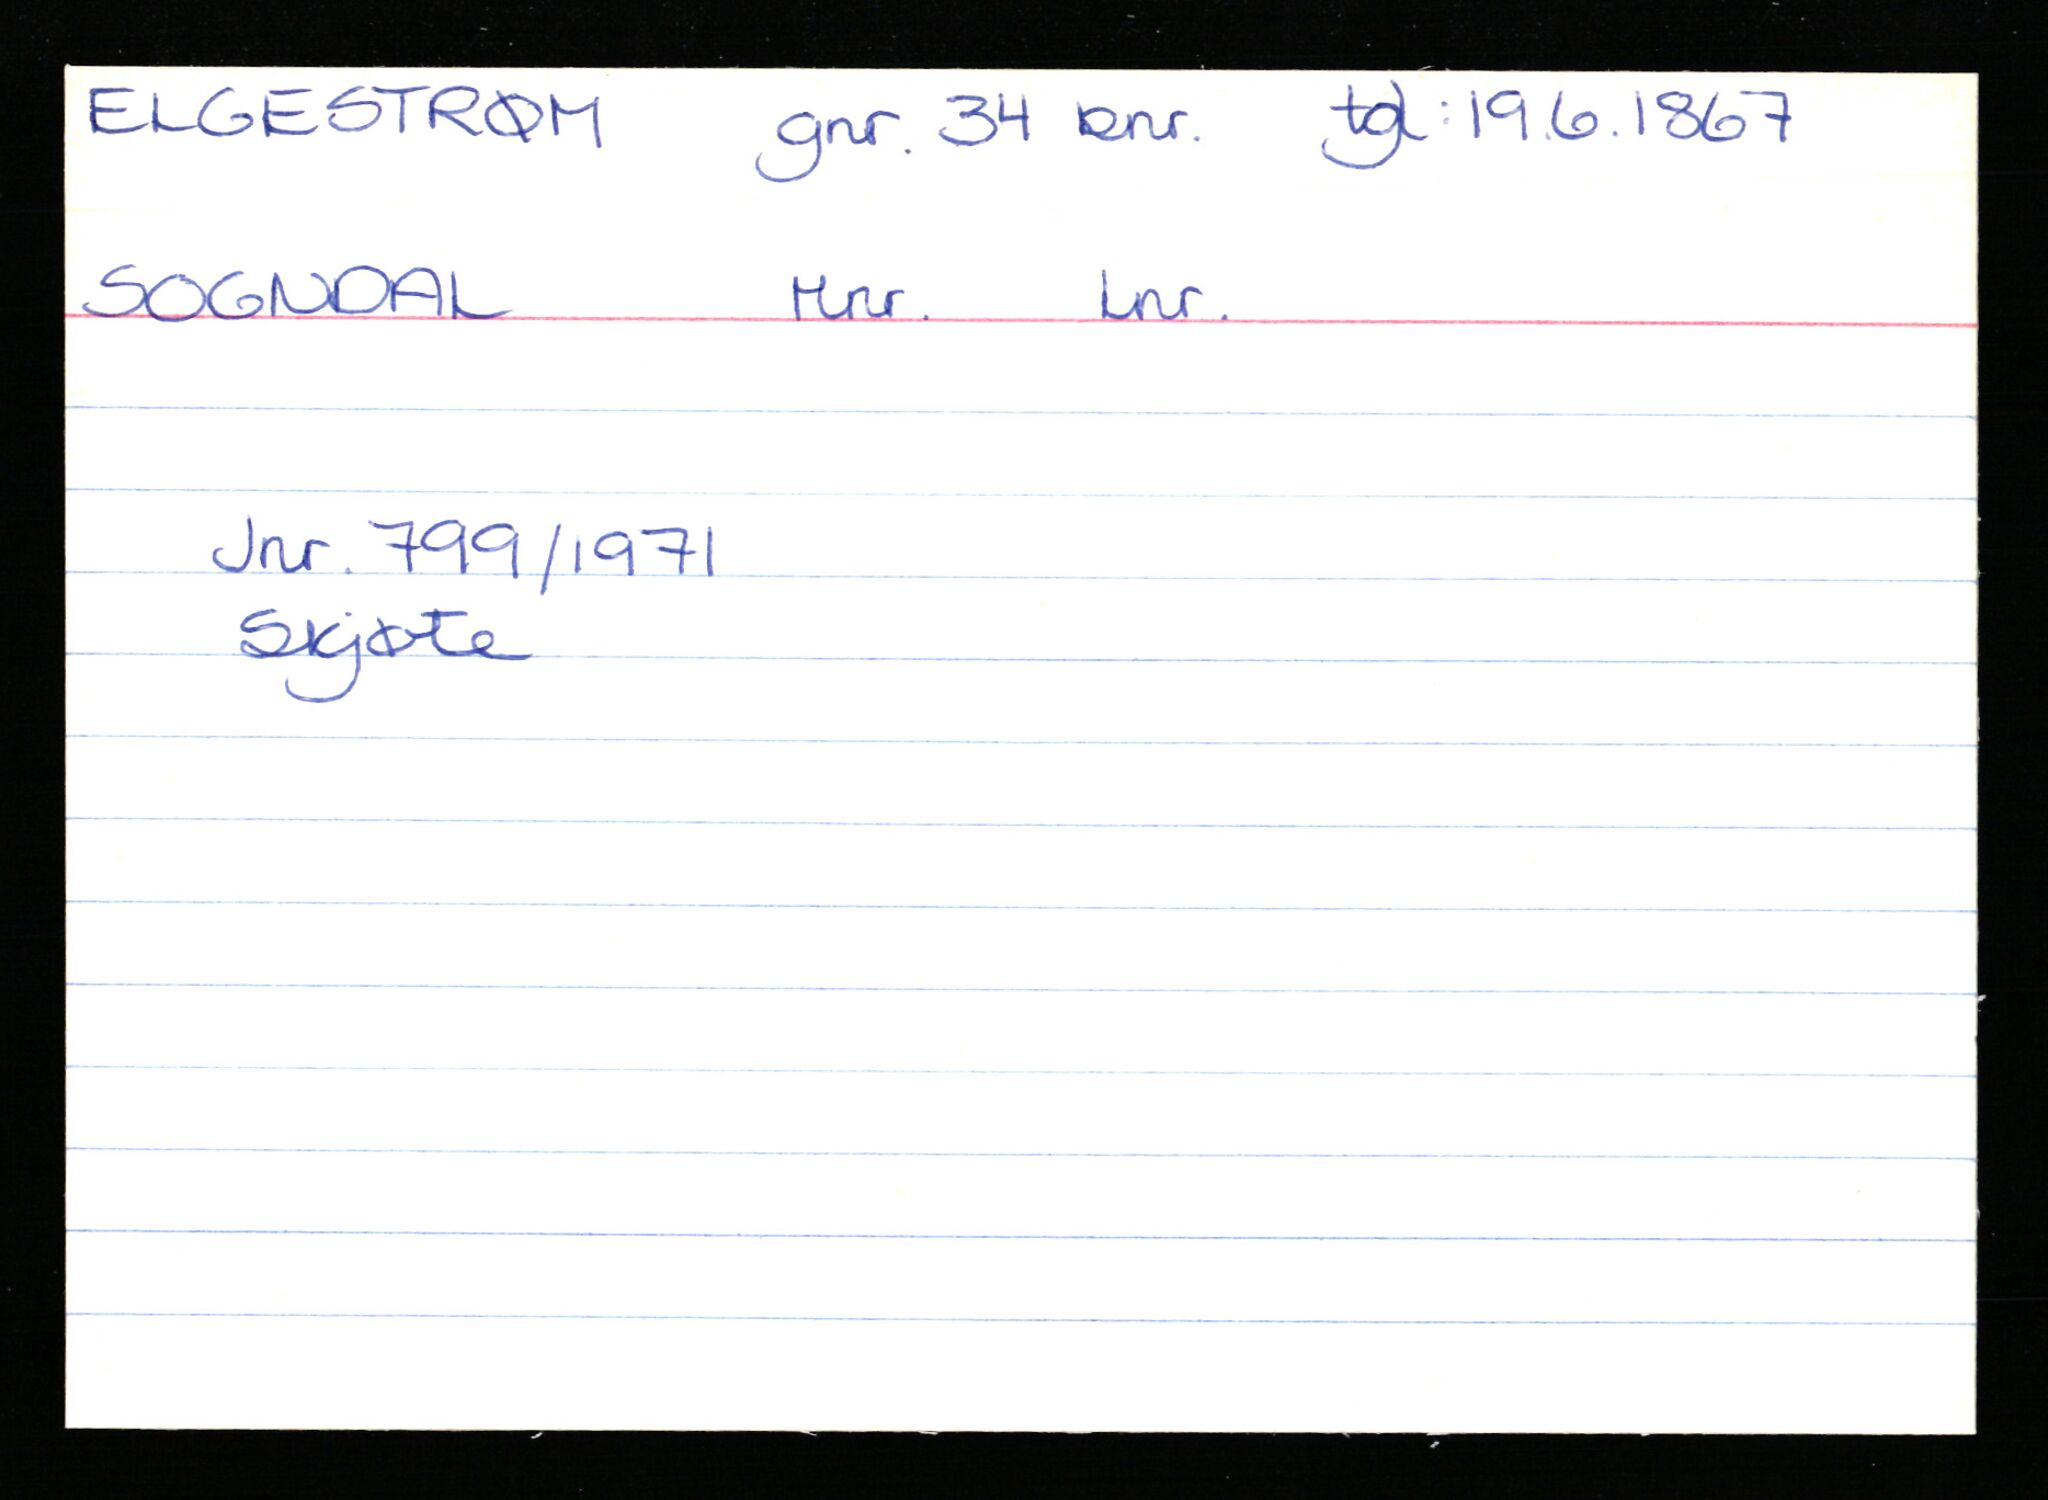 ELGESTRØM gnr. 34 bnr. tgl: 19.6.1867
SOGNDAL Mnr. Lnr.
Jnr. 799/1971
Skjøte